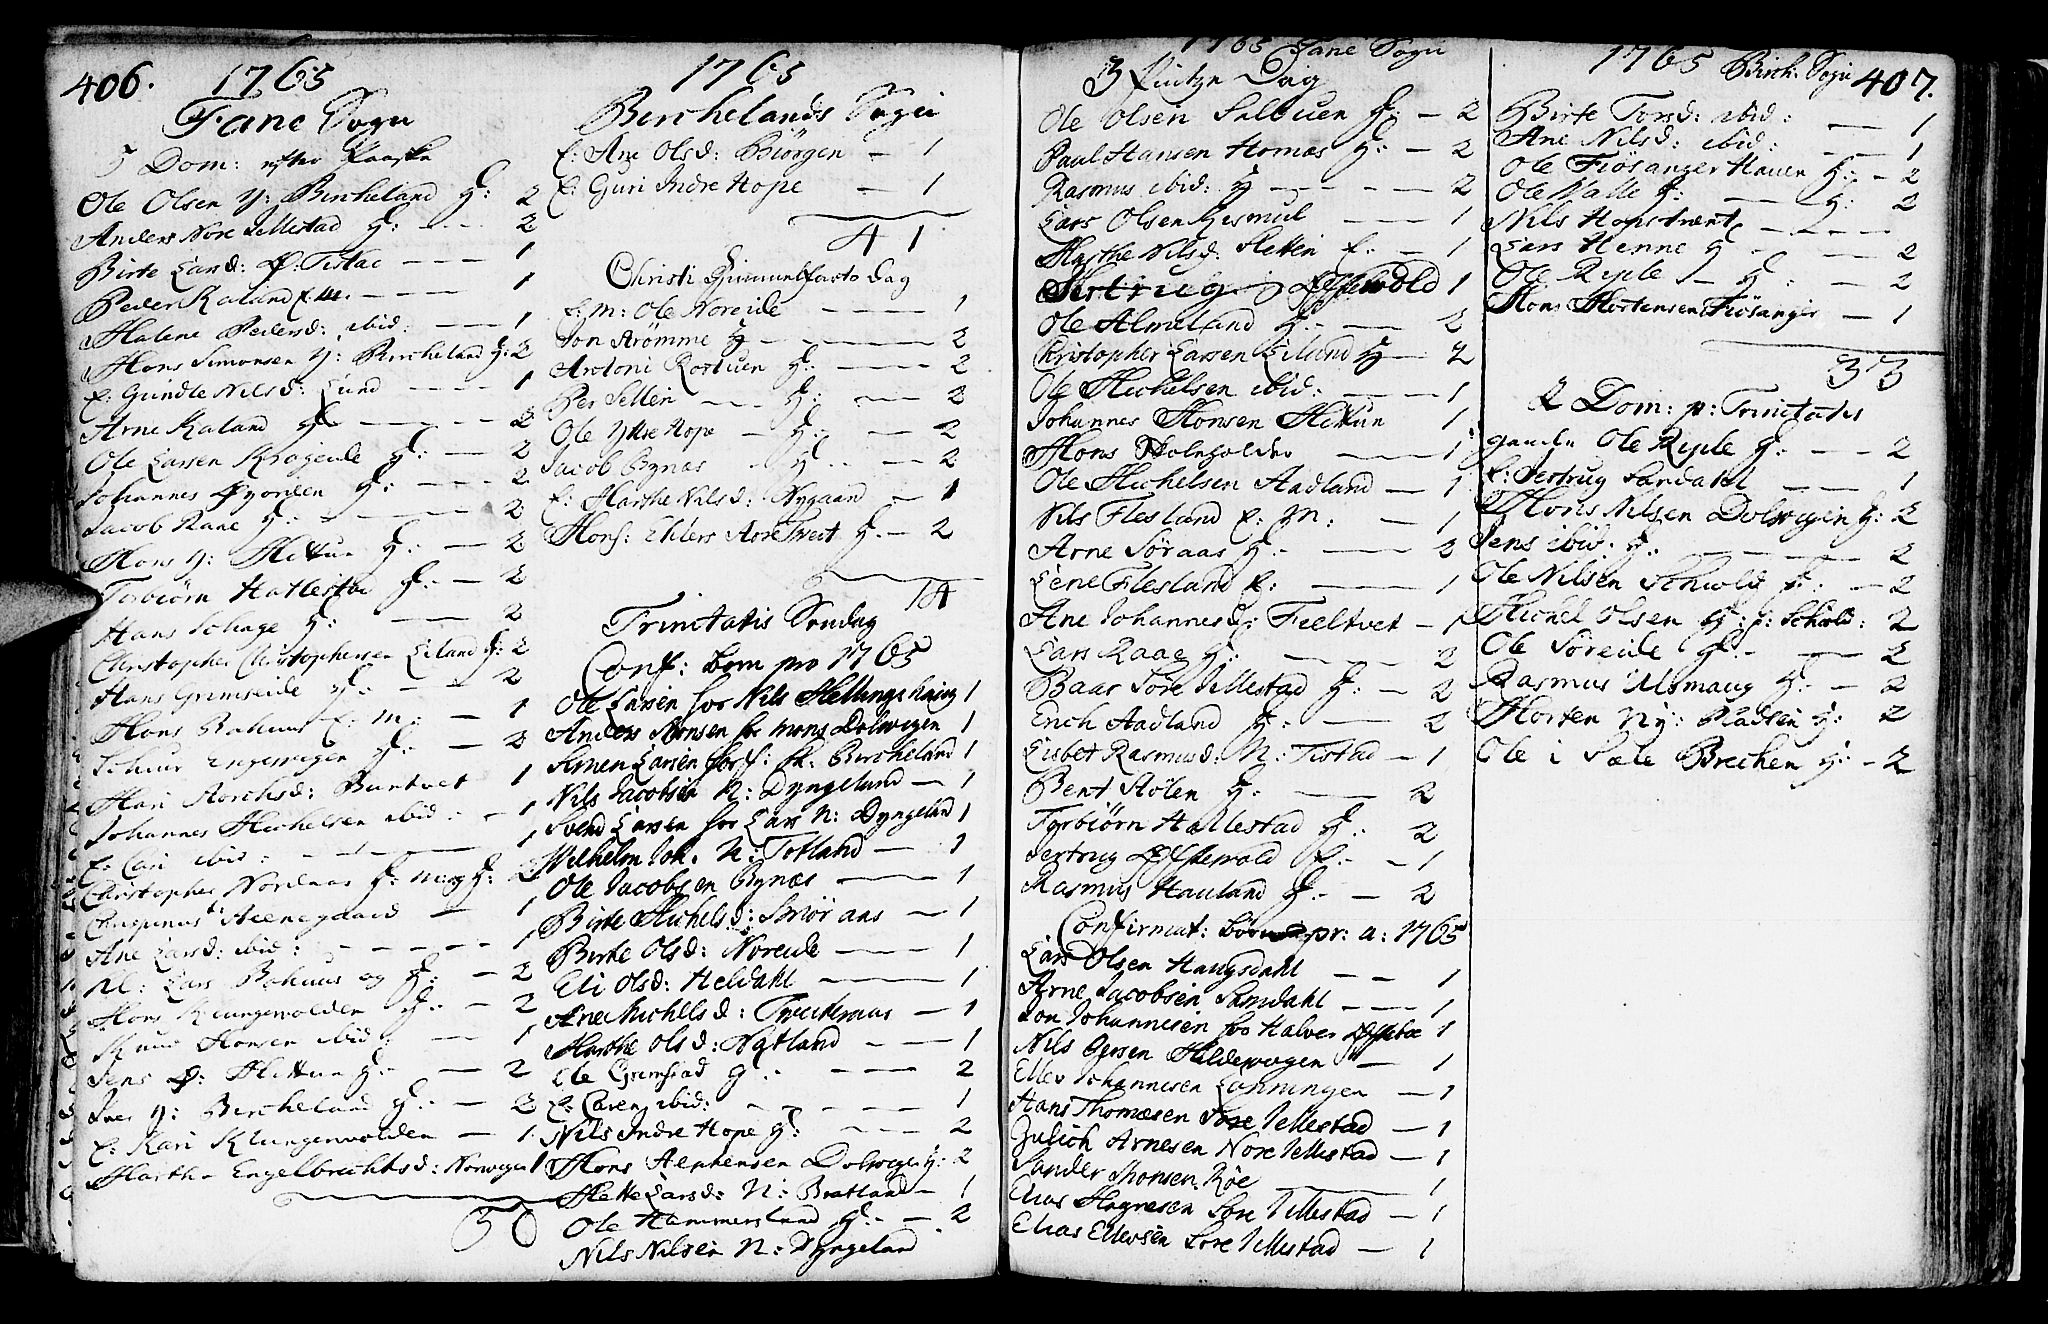 406. 1765
Fane Sogn
5 Dom: efter Paaske
Ole Olsen Y: Bircheland H: 2
Anders Nore Tillestad H: 2
Birte Larsd: Ø: Tistad 1
Peder Kaland E: M. 1
Malene Pedersd: ibid: 1
Mons Simonsen Y: Bircheland H: 2
E: Gundle Nilsd: Lund 1
Arne Kaland H: 2
Ole Larsen Krogeide H: 2
Johannes Øyorden H: 2
Jacob Rane H: 2
Mons Y: Mittun H: 2
Torbiørn Hatlestad H: 2
Hans Schage H: 2
Christopher Christophersen Eiland H: 2
Hans Grimseide H: 2
Mons Bahuus E: M: 1
H: 2
Mari 1
Johannes Michelsen ibid: 1
E: Cari ibid: 1
Christopher Nordaas H: 2
1
Ane Larsd: ibid: 1
Lars Bahuus og H: 2
Mons Klungervolden H: 2
Monsen ibid: 1
Jens Ø: Mittun H: 2
Iver Y: Bircheland H: 2
E: Kari Klungervolden 1
Marthe Engelbrechtsd: Norwigen 1
50
1765
Birchelands Sogn
E: Ane Olsd: Biørgen 1
E: Guri Indre Hope 1
41
Christi Himmelfarts Dag
E: M: Ole Noreide 1
Jon Strømme H 2
Antoni Rostuen H: 2
Per Sellen H: 2
Ole Ytre Hope H: 2
Jacob Bynæs H: 2
E: Marthe Nilsd: Nygaard 1
Mons: Ehlers Aaretveit H: 2
14
Trinitatis Søndag
Conf: børn pro 1765
Ole Larsen for Nils Mellingehaug 1
Anders Monsen for mons Dolwigen 1
Simen Larsen for Bircheland 1
Nils Jacobsen N: Dyngeland 1
Svend Larsen for Lars N: Dyngeland 1
Wilhelm Joh. N: Totland 1
Ole Jacobsen Bynæs 1
Birte Michelsd: Smøraas 1
Birte Olsd: Noreide 1
Eli Olsd: Heldahl 1
Ane Michelsd: Tveiteraas 1
Marthe Olsd: Natland 1
Ole Grimstad H: 2
E: Caren ibid: 1
Nils Indre Hope H: 2
Mons Dolwegen H: 2
Mette Larsd: N: Bratland 1
Ole Hammersland H: 2
Nils Nilsen N: Dyngeland
1765 Fane Sogn
3 Pintze Dag
Ole Olsen Salbuen H: 2
Paul Hansen Homæs H: 2
Rasmus ibid: H 2
Lars Olsen Resmul 1
Marthe Nilsd: Sletten E: 1
1
Ole Almeland H: 2
Christopher Larsen Eiland H 2
Ole Michelsen ibid: 1
Johannes Monsen Mittun 1
Mons Skoleholder 1
Ole Michelsen Aadland 1
Nils Flesland E: M: 1
Arne Søraas H: 2
Lene Flesland E: 1
Ane Johannesd: Tveltvet 1
Lars Raae H: 2
Baar Søre Tillestad H: 2
Erich Aadland H: 2
Lisbet Rasmusd: N: Tistad 1
Bent Stølen H: 2
Torbiørn Hatlestad H: 2
E: 1
Rasmus Hauland H: 2
Confirmat: børn pr: a: 1765
Lars Olsen Haugsdahl 1
Arne Jacobsen Samdahl 1
Jon Johannesen for Halvor 1
Nils Gersen Hildewegen 1
Ellev Johannesen Lønningen 1
Hans Thomæsen Søre Tillestad 1
Arnesen Nore Tillestad 1
Sander Monsen Røe 1
Elias Magnesen Søre Tillestad 1
Elias Ellevsen Søre Tillestad 1
1765 Birch: Sogn 407.
Birte Torsd: ibid: 1
Ane Nilsd: ibid: 1
Ole Fiøsanger Hauen H: 2
Ole Walle H: 2
Nils Hopstrænt
Lars Henne H 2
Ole Ryple H: 2
Mons Mortensen Fiøsanger 1
33
2 Dom: p: Trinitatis
gamle Ole Ryple H: 2
E: Sertrug Sandahl 1
Mons Nilsen Dolwigen H: 2
Jens ibid: H: 2
Ole Nilsen Schiold H: 2
Michel Olsen H: p: Schiold: 2
Ole Søreide H: 2
Rasmus Ulsmaug H: 2
Morten H: 2
Ole i Sæle Brechen H: 2